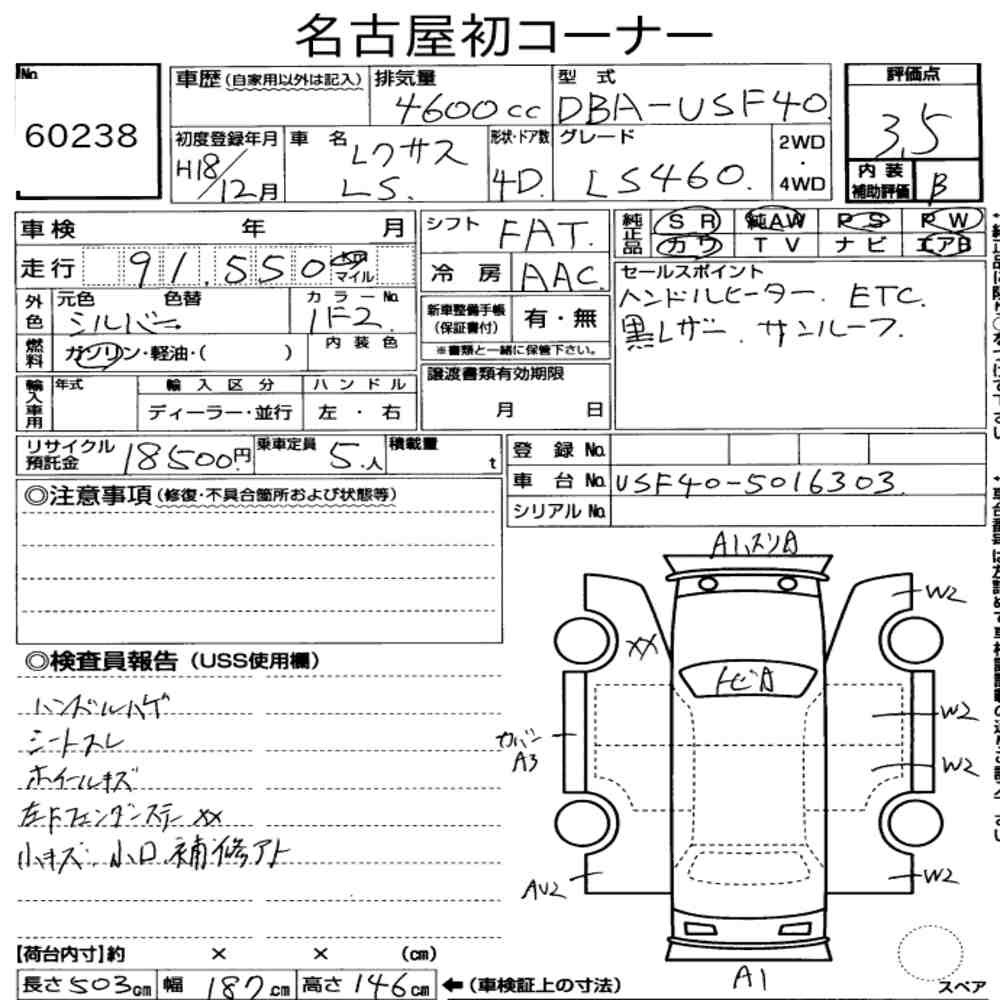 名古屋初コーナー
No.
60238
車歴(自家用以外は記入)
排気量
4600cc
型 式
DBA-USF40
評価点
3.5
初度登録年月
H18/12月
車 名
レクサス
LS.
形状・ドア数
4D.
グレード
LS460.
2WD
・
4WD
内 装
補助評価
B
車検 年 月
走行 91,550 km
マイル
シフト FAT.
冷 房 AAC
純正品 SR 純AW PS PW
カワ TV ナビ エアB
セールスポイント
ハンドルヒーター. ETC.
黒レザー. サンルーフ.
外色
元色 色替
シルバー
カラーNo.
1F2.
新車整備手帳
(保証書付)
有・無
※書類と一緒に保管下さい。
燃料
ガソリン・軽油・( )
内 装 色
譲渡書類有効期限
月 日
輸入車用
年式
輸 入 区 分
ディーラー・並行
ハ ン ド ル
左 ・ 右
リサイクル
預託金
18500円
乗車定員
5.人
積載量
t
登 録 No.
車 台 No. USF40-5016303.
シリアル No.
◎注意事項(修復・不具合箇所および状態等)
◎検査員報告(USS使用欄)
ハンドルハゲ
シートスレ
ホイールキズ
左Fフェンダーステー XX
小キズ. 小凹. 補修アト
A1ハズリ凹
XX
トビA
W2
W2
W2
W2
カバー
A3
AU2
A1
スペア
【荷台内寸】約 × × (cm)
長さ503cm 幅 187cm 高さ146cm ←(車検証上の寸法)